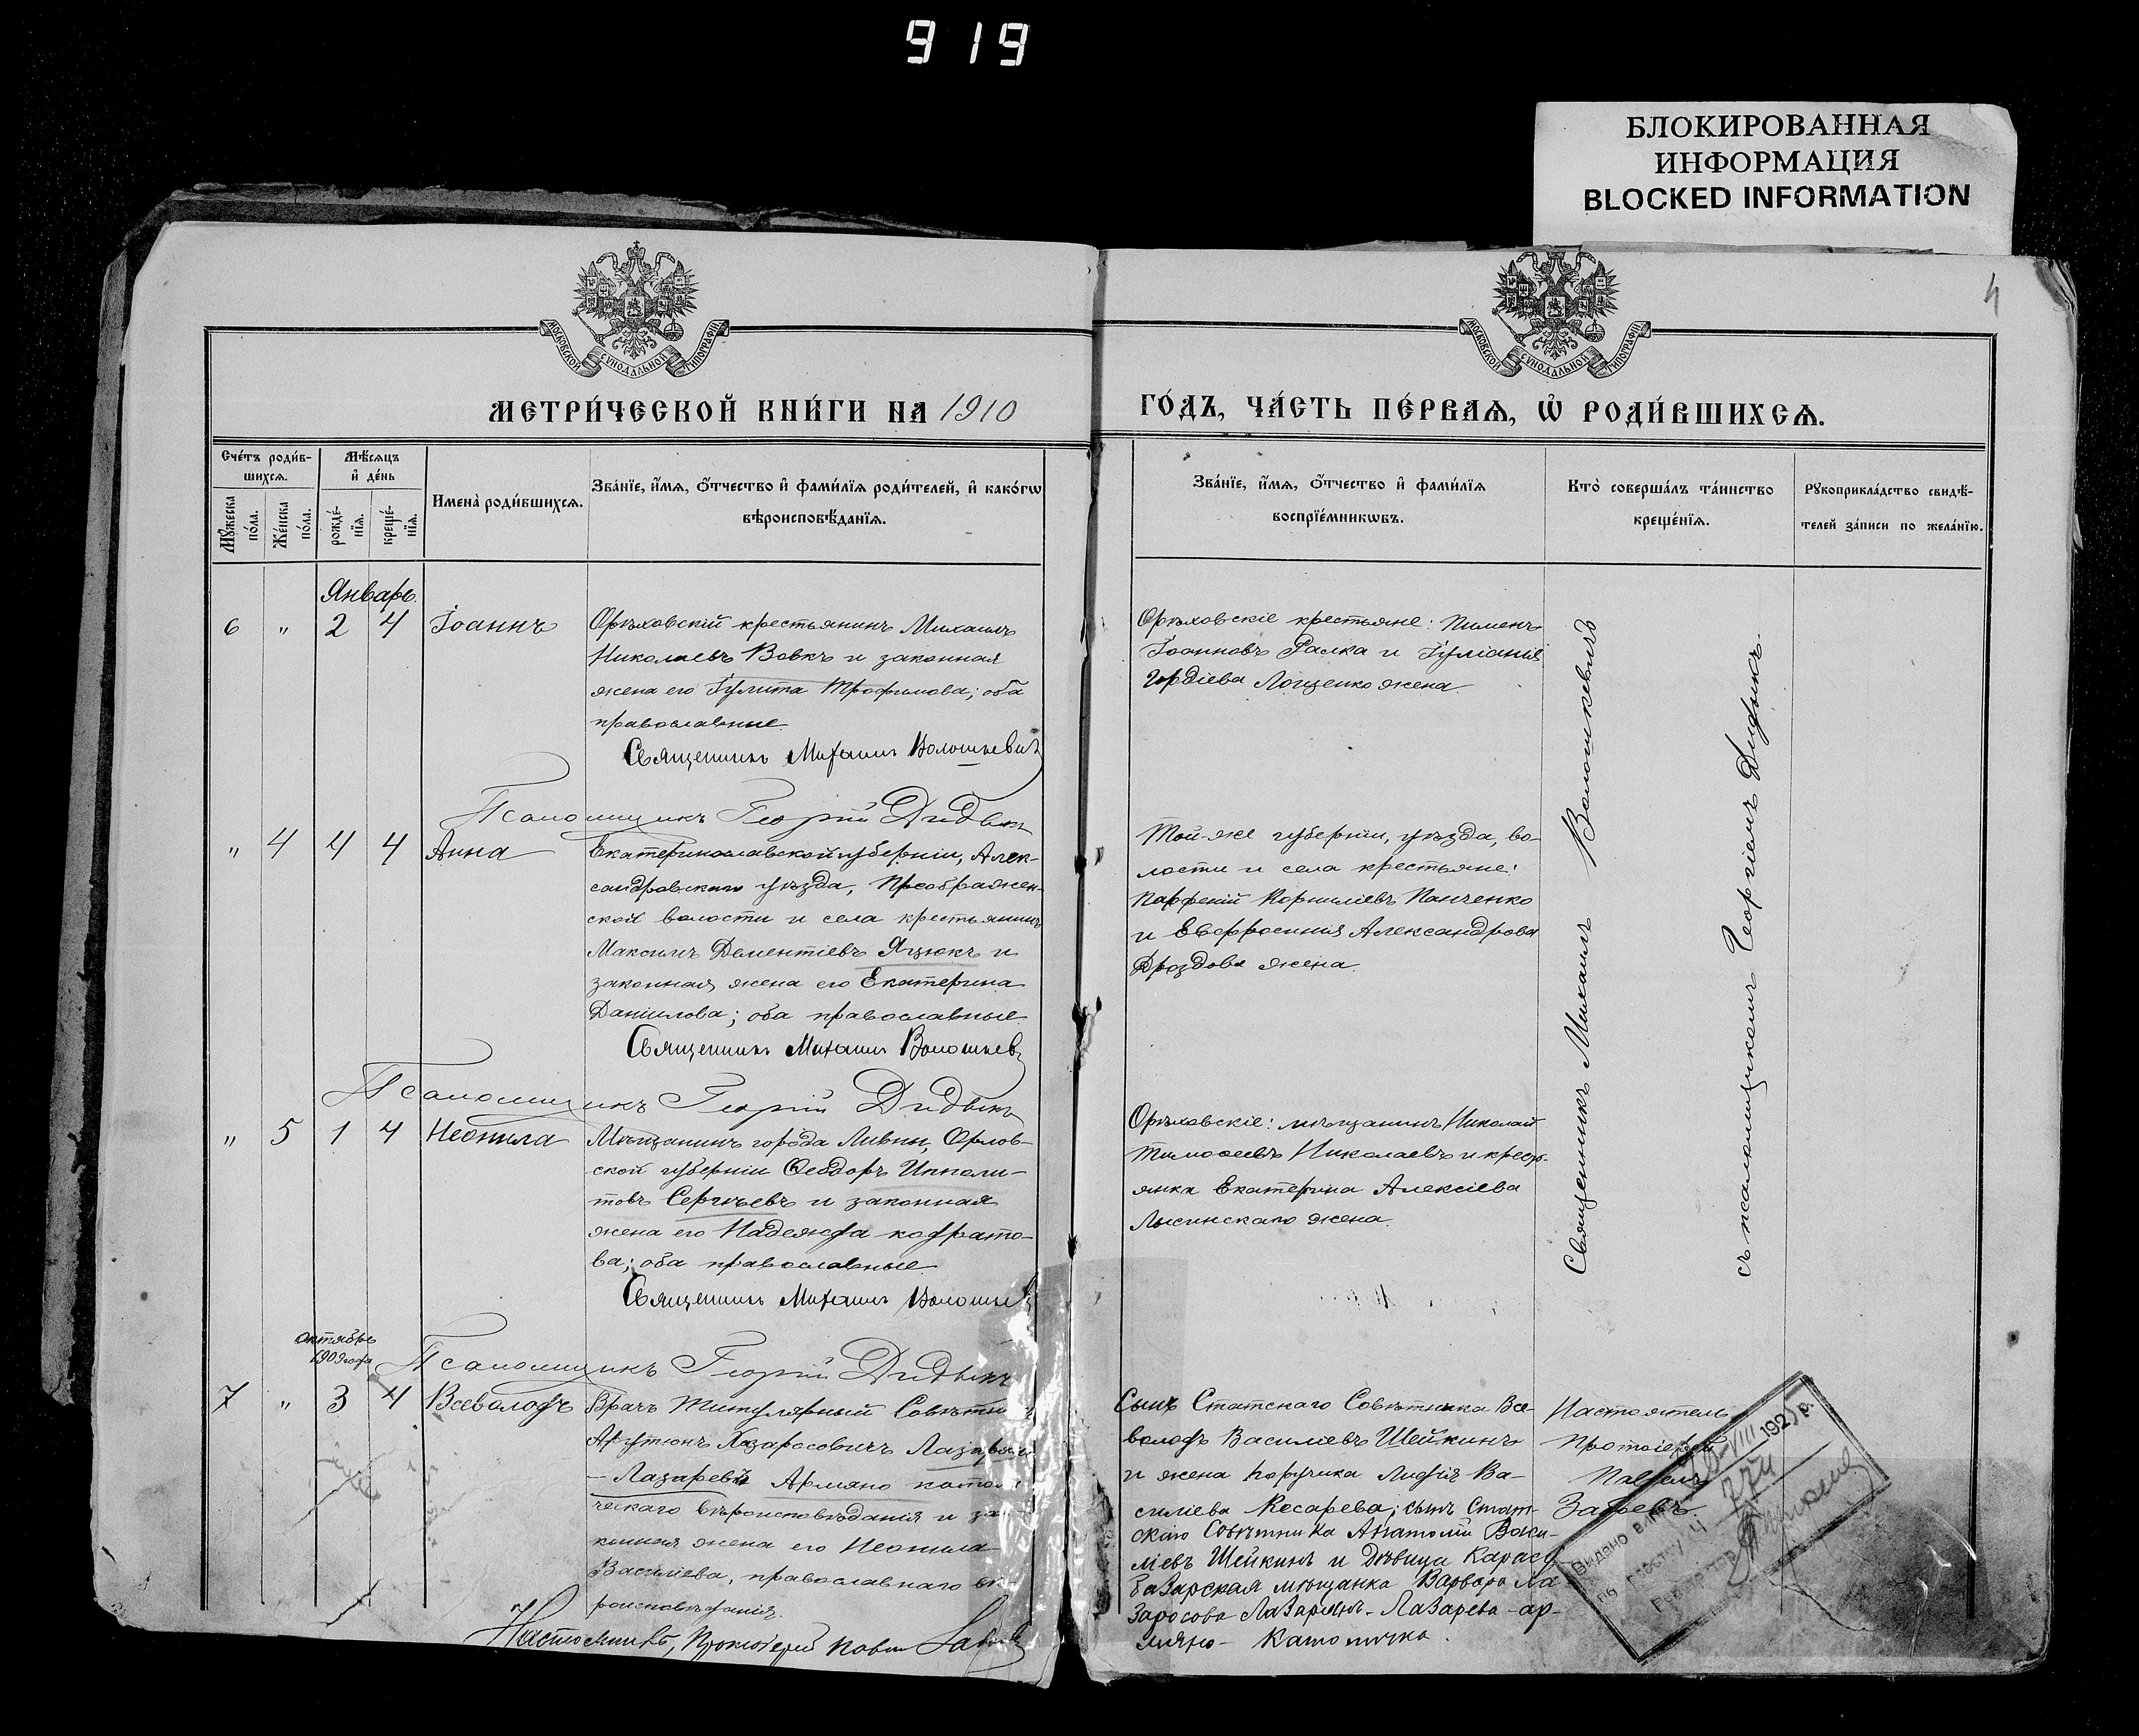 919
БЛОКИРОВАННАЯ
ИНФОРМАЦИЯ
BLOCKED INFORMATION
4
МОСКОВСКОЙ СѴНОДАЛЬНОЙ ТИПОГРАФІИ
МОСКОВСКОЙ СѴНОДАЛЬНОЙ ТИПОГРАФІИ
МЕТРИ́ЧЕСКОЙ КНИ́ГИ НА 1910
ГО́ДЪ, ЧА́СТЬ ПЕ́РВАѦ, Ѡ҆ РОДИ́ВШИХСѦ.
Сче́тъ роди́в-
шихсѧ.
Мꙋ́жеска по́ла.
Же́нска по́ла.
Мѣ́сѧцъ
и҆ де́нь
рожде́-
нїѧ.
креще́-
нїѧ.
Имена̀ роди́вшихсѧ.
Зва́нїе, и҆́мѧ, ѻ҆́тчество и҆ фами́лїѧ роди́телей, и҆ како́гѡ
вѣроисповѣ́данїѧ.
Зва́нїе, и҆́мѧ, ѻ҆́тчество и҆ фами́лїѧ
воспрїе́мникѡвъ.
Кто̀ соверша́лъ та́инство
креще́нїѧ.
Рꙋкоприкла́дство свидѣ́-
телей за́писи по жела́нїю.
Январь.
6 " 2 4 Іоаннъ
Орѣховскій крестьянинъ Михаилъ
Николаевъ Вовкъ и законная
жена его Іулита Трофимова; оба
православные.
Священникъ Михаилъ Волошкевичъ
Псаломщикъ Георгій Дидыкъ
Орѣховскіе крестьяне: Пименъ
Іоанновъ Ралка и Іуліанія
Гордіева Лощенко жена.
" 4 4 4 Анна
Екатеринославской губерніи, Алек-
сандровскаго уѣзда, Преображен-
ской волости и села крестьянинъ
Максимъ Дементіевъ Яцюкъ и
законная жена его Екатерина
Даніилова; оба православные.
Священникъ Михаилъ Волошкев
Псаломщикъ Георгій Дидыкъ
Той-же губерніи, уѣзда, во-
лости и села крестьяне:
Парфеній Корниліевъ Панченко
и Евфросинія Александрова
Дроздова жена.
" 5 1 4 Неонила
Мѣщанинъ города Ливны, Орлов-
ской губерніи Ѳеодоръ Ипполи-
товъ Сергѣевъ и законная
жена его Надежда Кодрато-
ва; оба православные.
Священникъ Михаилъ Волошкев
Псаломщикъ Георгій Дидыкъ
Орѣховскіе: мѣщанинъ Николай
Тимоѳеевъ Николаевъ и кресть-
янка Екатерина Алексіева
Лысинскаго жена.
Священникъ Михаилъ Волошкевичъ
съ псаломщикомъ Георгіемъ Дидыкъ.
Октябрь
1909 года
7 " 3 4 Всеволодъ
Врачъ Титулярный Совѣтни
Арутюнъ Хазаросовичъ Лазарьян
- Лазаревъ Армяно катол
ческаго вѣроисповѣданія и за
конная жена его Неонила
Василіева, православнаго вѣ-
роисповѣданія.
Настоятель, Протоіерей Павелъ
Сынъ Статскаго Совѣтника Все-
володъ Василіевъ Шейкинъ
и жена поручика Лидія Ва-
силіева Кесарева; сынъ Стат-
скаго Совѣтника Анатолій Васи-
ліевъ Шейкинъ и Дѣвица Карасу-
базарская мѣщанка Варвара Ла
заросова Лазарянъ-Лазарева - ар-
мяно-католичка.
Настоятель
Протоіерей
Павелъ
Видано
192 р.
774